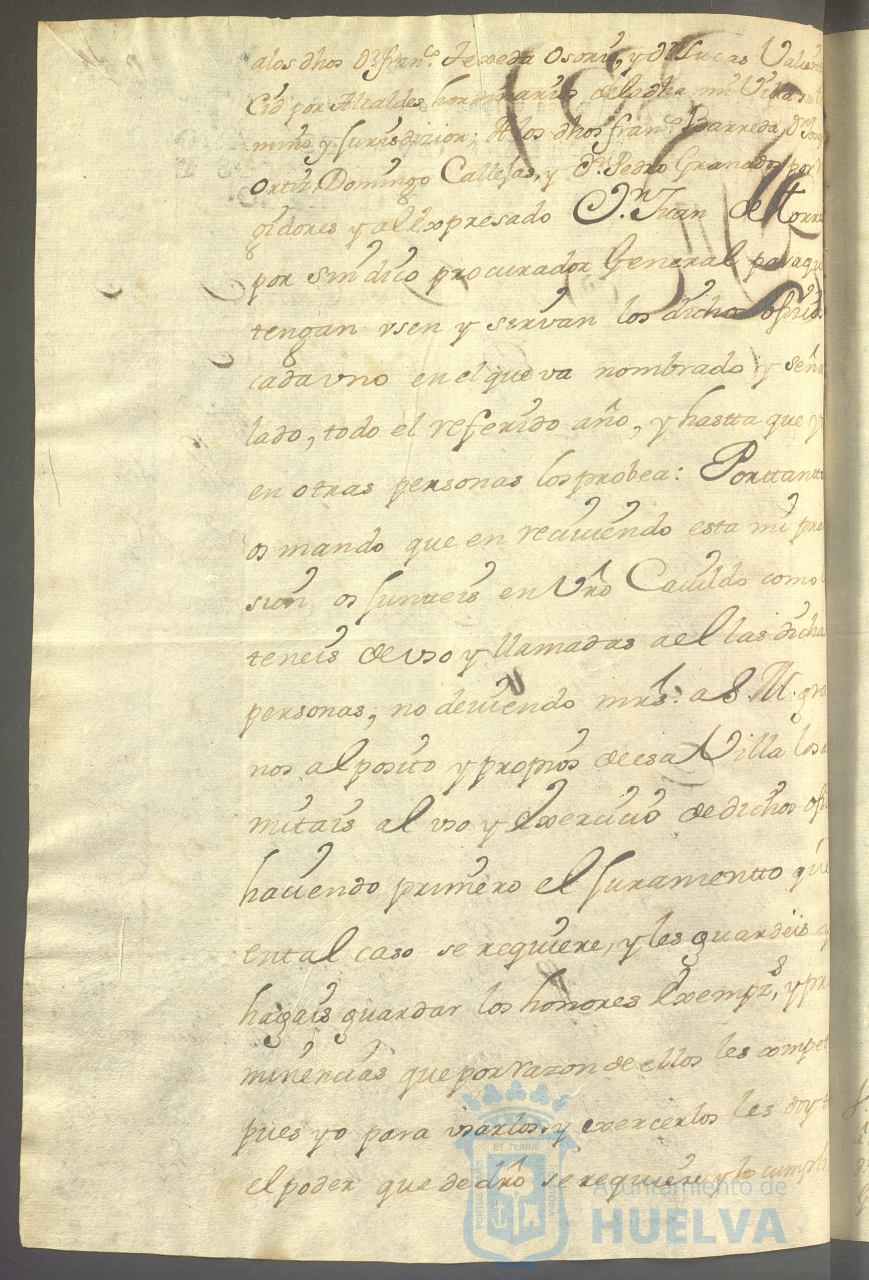 a los dhos Dn. franco. Texeda Osorio, y Dn. Lucas Valien
Cid por Alcaldes hordinarios de la dha mi Villa su t
mino y Jurisdizion; A los dhos franco. Barreda, Dn. Jorg
Ortiz, Domingo Callejas, y Dn. Pedro Granados por
gidores y al expresado Dn. Juan de Torre
por Sindico procurador General para que
tengan vsen y servan los dichos ofizio
cada vno en el que va nombrado y señа
lado, todo el referido año, y hastta que y
en otras personas los probea: Porttantto
os mando que en reciuiendo esta mi pro
sion os Juntteis en Vro Cauildo como l
teneis de vso y llamadas a el las dicha
personas, no deuiendo mrs. a S. M. gra
nos al posito y propios de esa Villa los a
mitais al vso y exercicio de dichos ofi
haciendo primero el Juramentto que
ental caso se requiere, y les guardeis y
hagais guardar los honores exempzs, y pre
minencias que por razon de ellos les compet
pues yo para vsarlos, y exercerlos les doy t
el poder que de dro se requiere y lo cumpli
Ayuntamiento de
HUELVA